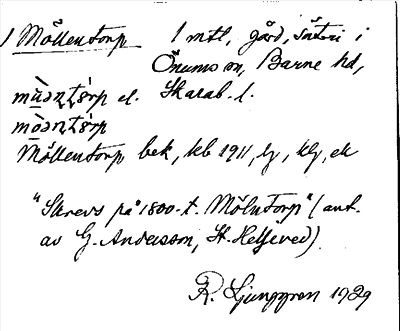 1 Möllentorp 1 mtl, gård, säteri i
Önums sn, Barne hd,
el. Skarab. l.
Möllentorp bek, kb 1911, lg, klg, ek
"Skrevs på 1800-t. Mölntorp" (ant.
av G. Andersson, St. Heljered)
R. Ljunggren 1929